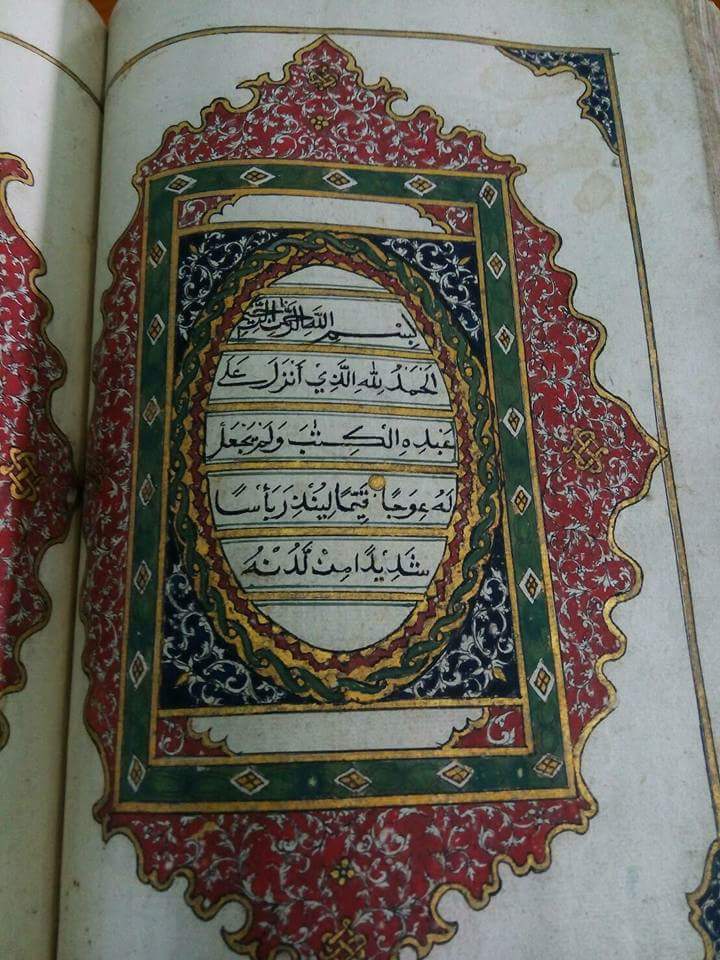 بِسْمِ اللَّهِ الرَّحْمَٰنِ الرَّحِيمِ
اَلْحَمْدُ لِلَّهِ الَّذِي أَنْزَلَ عَلَى
عَبْدِهِ الْكِتَٰبَ وَلَمْ يَجْعَلْ
لَهُ عِوَجًا قَيِّمًا لِيُنْذِرَ بَأْسًا
شَدِيْدًا مِنْ لَّدُنْهُ